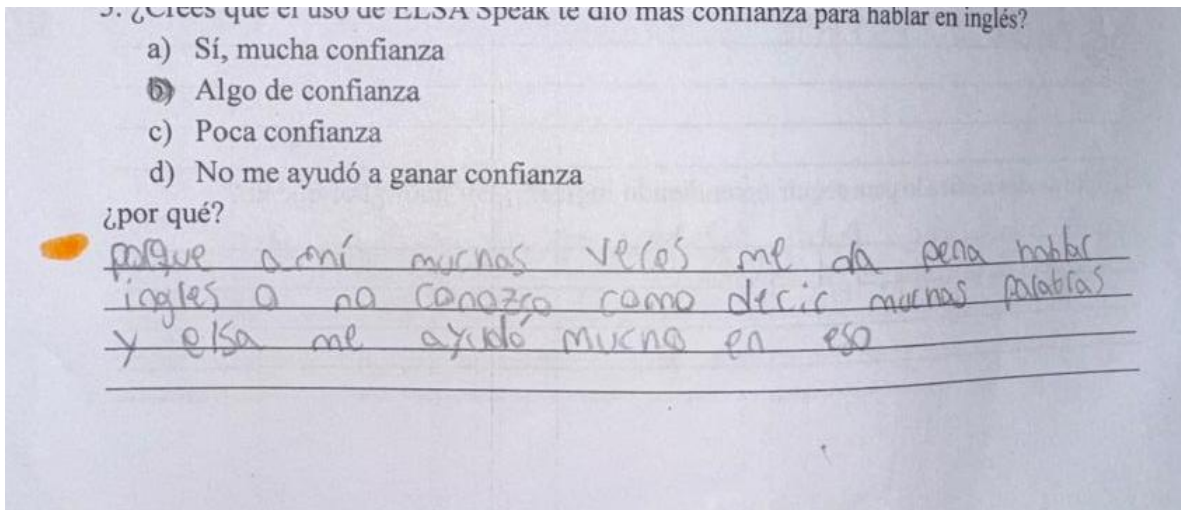 5. ¿Crees que el uso de ELSA Speak te dio más confianza para hablar en inglés?
a) Sí, mucha confianza
b) Algo de confianza
c) Poca confianza
d) No me ayudó a ganar confianza
¿por qué?
porque a mí muchas veces me da pena hablar
ingles o no conozco como decir muchas palabras
y elsa me ayudó mucho en eso